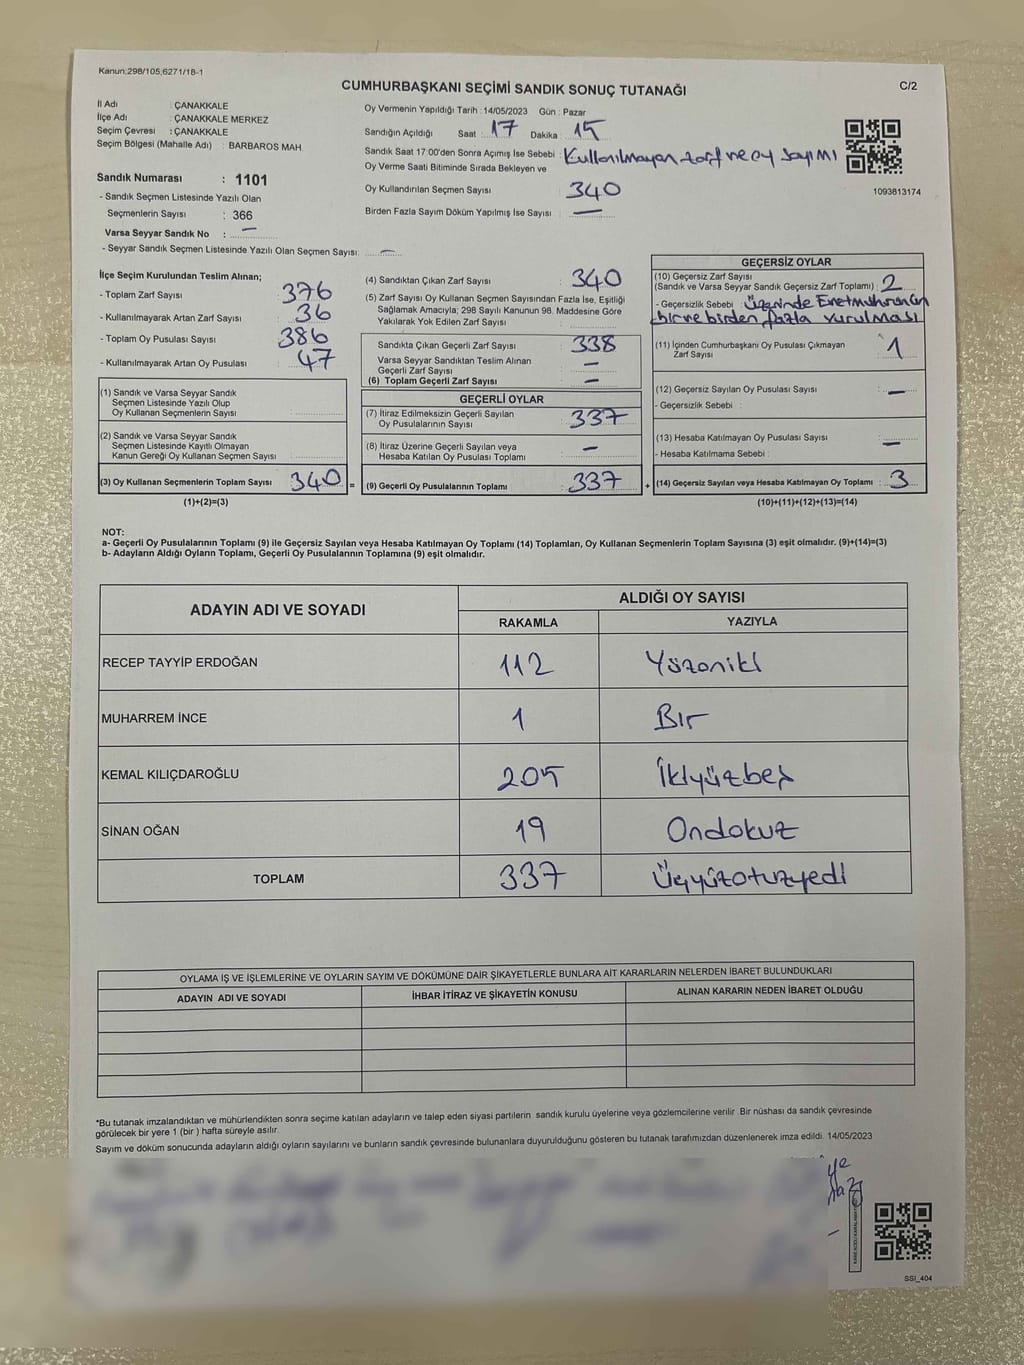 Kanun;298/105,6271/18-1
CUMHURBAŞKANI SEÇİMİ SANDIK SONUÇ TUTANAĞI
C/2
İl Adı : ÇANAKKALE
İlçe Adı : ÇANAKKALE MERKEZ
Seçim Çevresi : ÇANAKKALE
Seçim Bölgesi (Mahalle Adı) : BARBAROS MAH.
Sandık Numarası : 1101
- Sandık Seçmen Listesinde Yazılı Olan
Seçmenlerin Sayısı : 366
Varsa Seyyar Sandık No : —
- Seyyar Sandık Seçmen Listesinde Yazılı Olan Seçmen Sayısı: —
Oy Vermenin Yapıldığı Tarih : 14/05/2023 Gün : Pazar
Sandığın Açıldığı Saat : 17 Dakika : 15
Sandık Saat 17:00'den Sonra Açımış İse Sebebi : Kullanılmayan zarf ve oy sayımı
Oy Verme Saati Bitiminde Sırada Bekleyen ve
Oy Kullandırılan Seçmen Sayısı 340
Birden Fazla Sayım Döküm Yapılmış İse Sayısı —
1093813174
İlçe Seçim Kurulundan Teslim Alınan;
- Toplam Zarf Sayısı : 376
- Kullanılmayarak Artan Zarf Sayısı : 36
- Toplam Oy Pusulası Sayısı : 386
- Kullanılmayarak Artan Oy Pusulası : 47
(1) Sandık ve Varsa Seyyar Sandık
Seçmen Listesinde Yazılı Olup
Oy Kullanan Seçmenlerin Sayısı :
(2) Sandık ve Varsa Seyyar Sandık
Seçmen Listesinde Kayıtlı Olmayan
Kanun Gereği Oy Kullanan Seçmen Sayısı :
(3) Oy Kullanan Seçmenlerin Toplam Sayısı : 340 =
(1)+(2)=(3)
(4) Sandıktan Çıkan Zarf Sayısı : 340
(5) Zarf Sayısı Oy Kullanan Seçmen Sayısından Fazla İse, Eşitliği
Sağlamak Amacıyla; 298 Sayılı Kanunun 98. Maddesine Göre
Yakılarak Yok Edilen Zarf Sayısı :
Sandıkta Çıkan Geçerli Zarf Sayısı : 338
Varsa Seyyar Sandıktan Teslim Alınan
Geçerli Zarf Sayısı : —
(6) Toplam Geçerli Zarf Sayısı : —
GEÇERLİ OYLAR
(7) İtiraz Edilmeksizin Geçerli Sayılan
Oy Pusulalarının Sayısı : 337
(8) İtiraz Üzerine Geçerli Sayılan veya
Hesaba Katılan Oy Pusulası Toplamı : —
(9) Geçerli Oy Pusulalarının Toplamı : 337 +
GEÇERSİZ OYLAR
(10) Geçersiz Zarf Sayısı
(Sandık ve Varsa Seyyar Sandık Geçersiz Zarf Toplamı) : 2
- Geçersizlik Sebebi : Üzerinde Evet mührünün
bir ve birden fazla vurulması
(11) İçinden Cumhurbaşkanı Oy Pusulası Çıkmayan
Zarf Sayısı : 1
(12) Geçersiz Sayılan Oy Pusulası Sayısı : —
- Geçersizlik Sebebi :
(13) Hesaba Katılmayan Oy Pusulası Sayısı : —
- Hesaba Katılmama Sebebi :
(14) Geçersiz Sayılan veya Hesaba Katılmayan Oy Toplamı : 3
(10)+(11)+(12)+(13)=(14)
NOT:
a- Geçerli Oy Pusulalarının Toplamı (9) ile Geçersiz Sayılan veya Hesaba Katılmayan Oy Toplamı (14) Toplamları, Oy Kullanan Seçmenlerin Toplam Sayısına (3) eşit olmalıdır. (9)+(14)=(3)
b- Adayların Aldığı Oyların Toplamı, Geçerli Oy Pusulalarının Toplamına (9) eşit olmalıdır.
ADAYIN ADI VE SOYADI ALDIĞI OY SAYISI
RAKAMLA YAZIYLA
RECEP TAYYİP ERDOĞAN 112 Yüzoniki
MUHARREM İNCE 1 Bir
KEMAL KILIÇDAROĞLU 205 İkiyüzbeş
SİNAN OĞAN 19 Ondokuz
TOPLAM 337 Üçyüzotuzyedi
OYLAMA İŞ VE İŞLEMLERİNE VE OYLARIN SAYIM VE DÖKÜMÜNE DAİR ŞİKAYETLERLE BUNLARA AİT KARARLARIN NELERDEN İBARET BULUNDUKLARI
ADAYIN ADI VE SOYADI İHBAR İTİRAZ VE ŞİKAYETİN KONUSU ALINAN KARARIN NEDEN İBARET OLDUĞU
*Bu tutanak imzalandıktan ve mühürlendikten sonra seçime katılan adayların ve talep eden siyasi partilerin sandık kurulu üyelerine veya gözlemcilerine verilir .Bir nüshası da sandık çevresinde
görülecek bir yere 1 (bir ) hafta süreyle asılır.
Sayım ve döküm sonucunda adayların aldığı oyların sayılarını ve bunların sandık çevresinde bulunanlara duyurulduğunu gösteren bu tutanak tarafımızdan düzenlenerek imza edildi. 14/05/2023
SSI_404